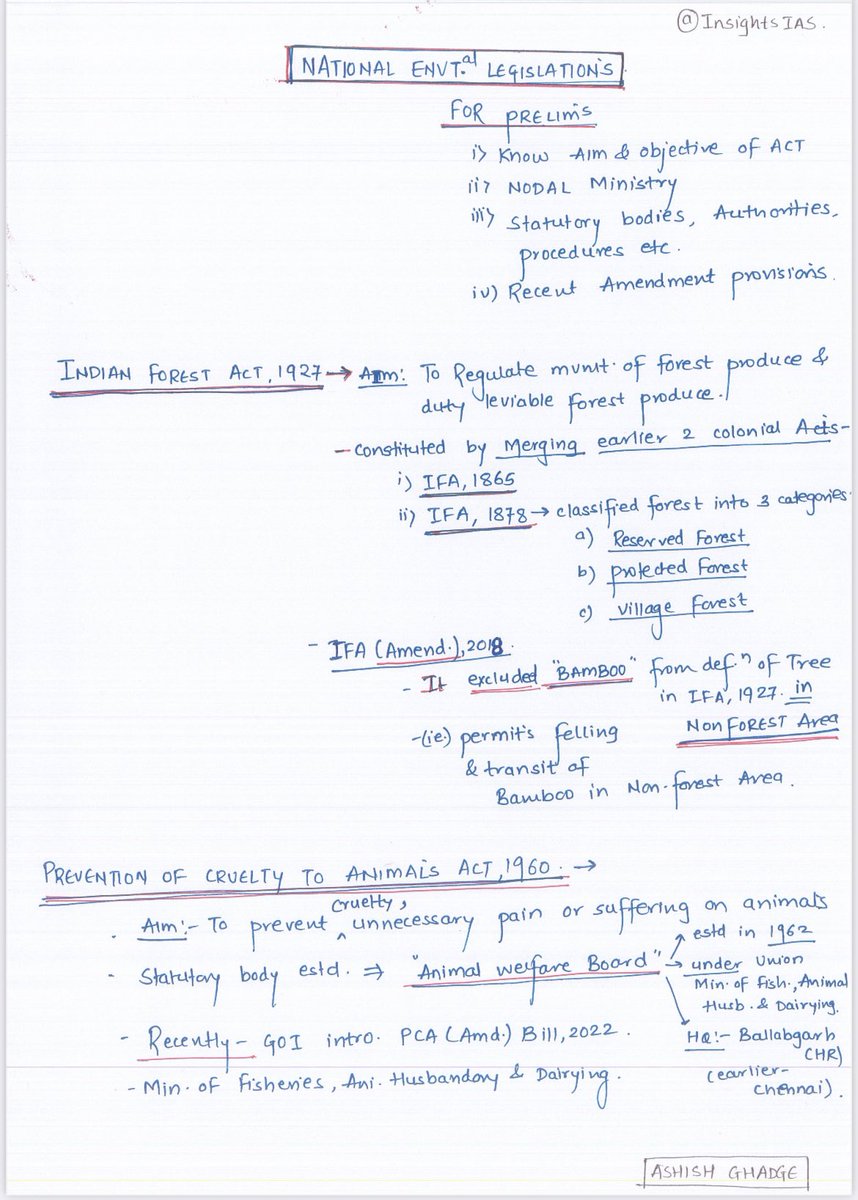 @InsightsIAS.
NATIONAL ENVT.al LEGISLATIONS
FOR PRELIMS
i> Know Aim & objective of ACT
ii> NODAL Ministry
iii> Statutory bodies, Authorities,
procedures etc.
iv) Recent Amendment provisions.
INDIAN FOREST ACT, 1927 → AIm: To Regulate mvmt. of forest produce &
duty leviable forest produce.
- constituted by Merging earlier 2 colonial Acts-
i) IFA, 1865
ii) IFA, 1878 → classified forest into 3 categories.
a) Reserved Forest
b) protected Forest
c) village Forest
- IFA (Amend.), 2018.
- It excluded "BAMBOO" from def.n of Tree
in IFA, 1927. in
NonFOREST Area
-(ie.) permits felling
& transit of
Bamboo in Non-forest Area.
PREVENTION OF CRUELTY TO ANIMALS ACT, 1960. →
. Aim:- To prevent ^ cruelty, unnecessary pain or suffering on animals
- Statutory body estd. ⇒ "Animal welfare Board"
→ estd in 1962
→ under Union
Min. of Fish., Animal
Husb. & Dairying.
HQ:- Ballabgarh
(HR)
(earlier-
chennai).
- Recently - GOI intro. PCA (Amd.) Bill, 2022.
- Min. of Fisheries, Ani. Husbandory & Dairying.
ASHISH GHADGE